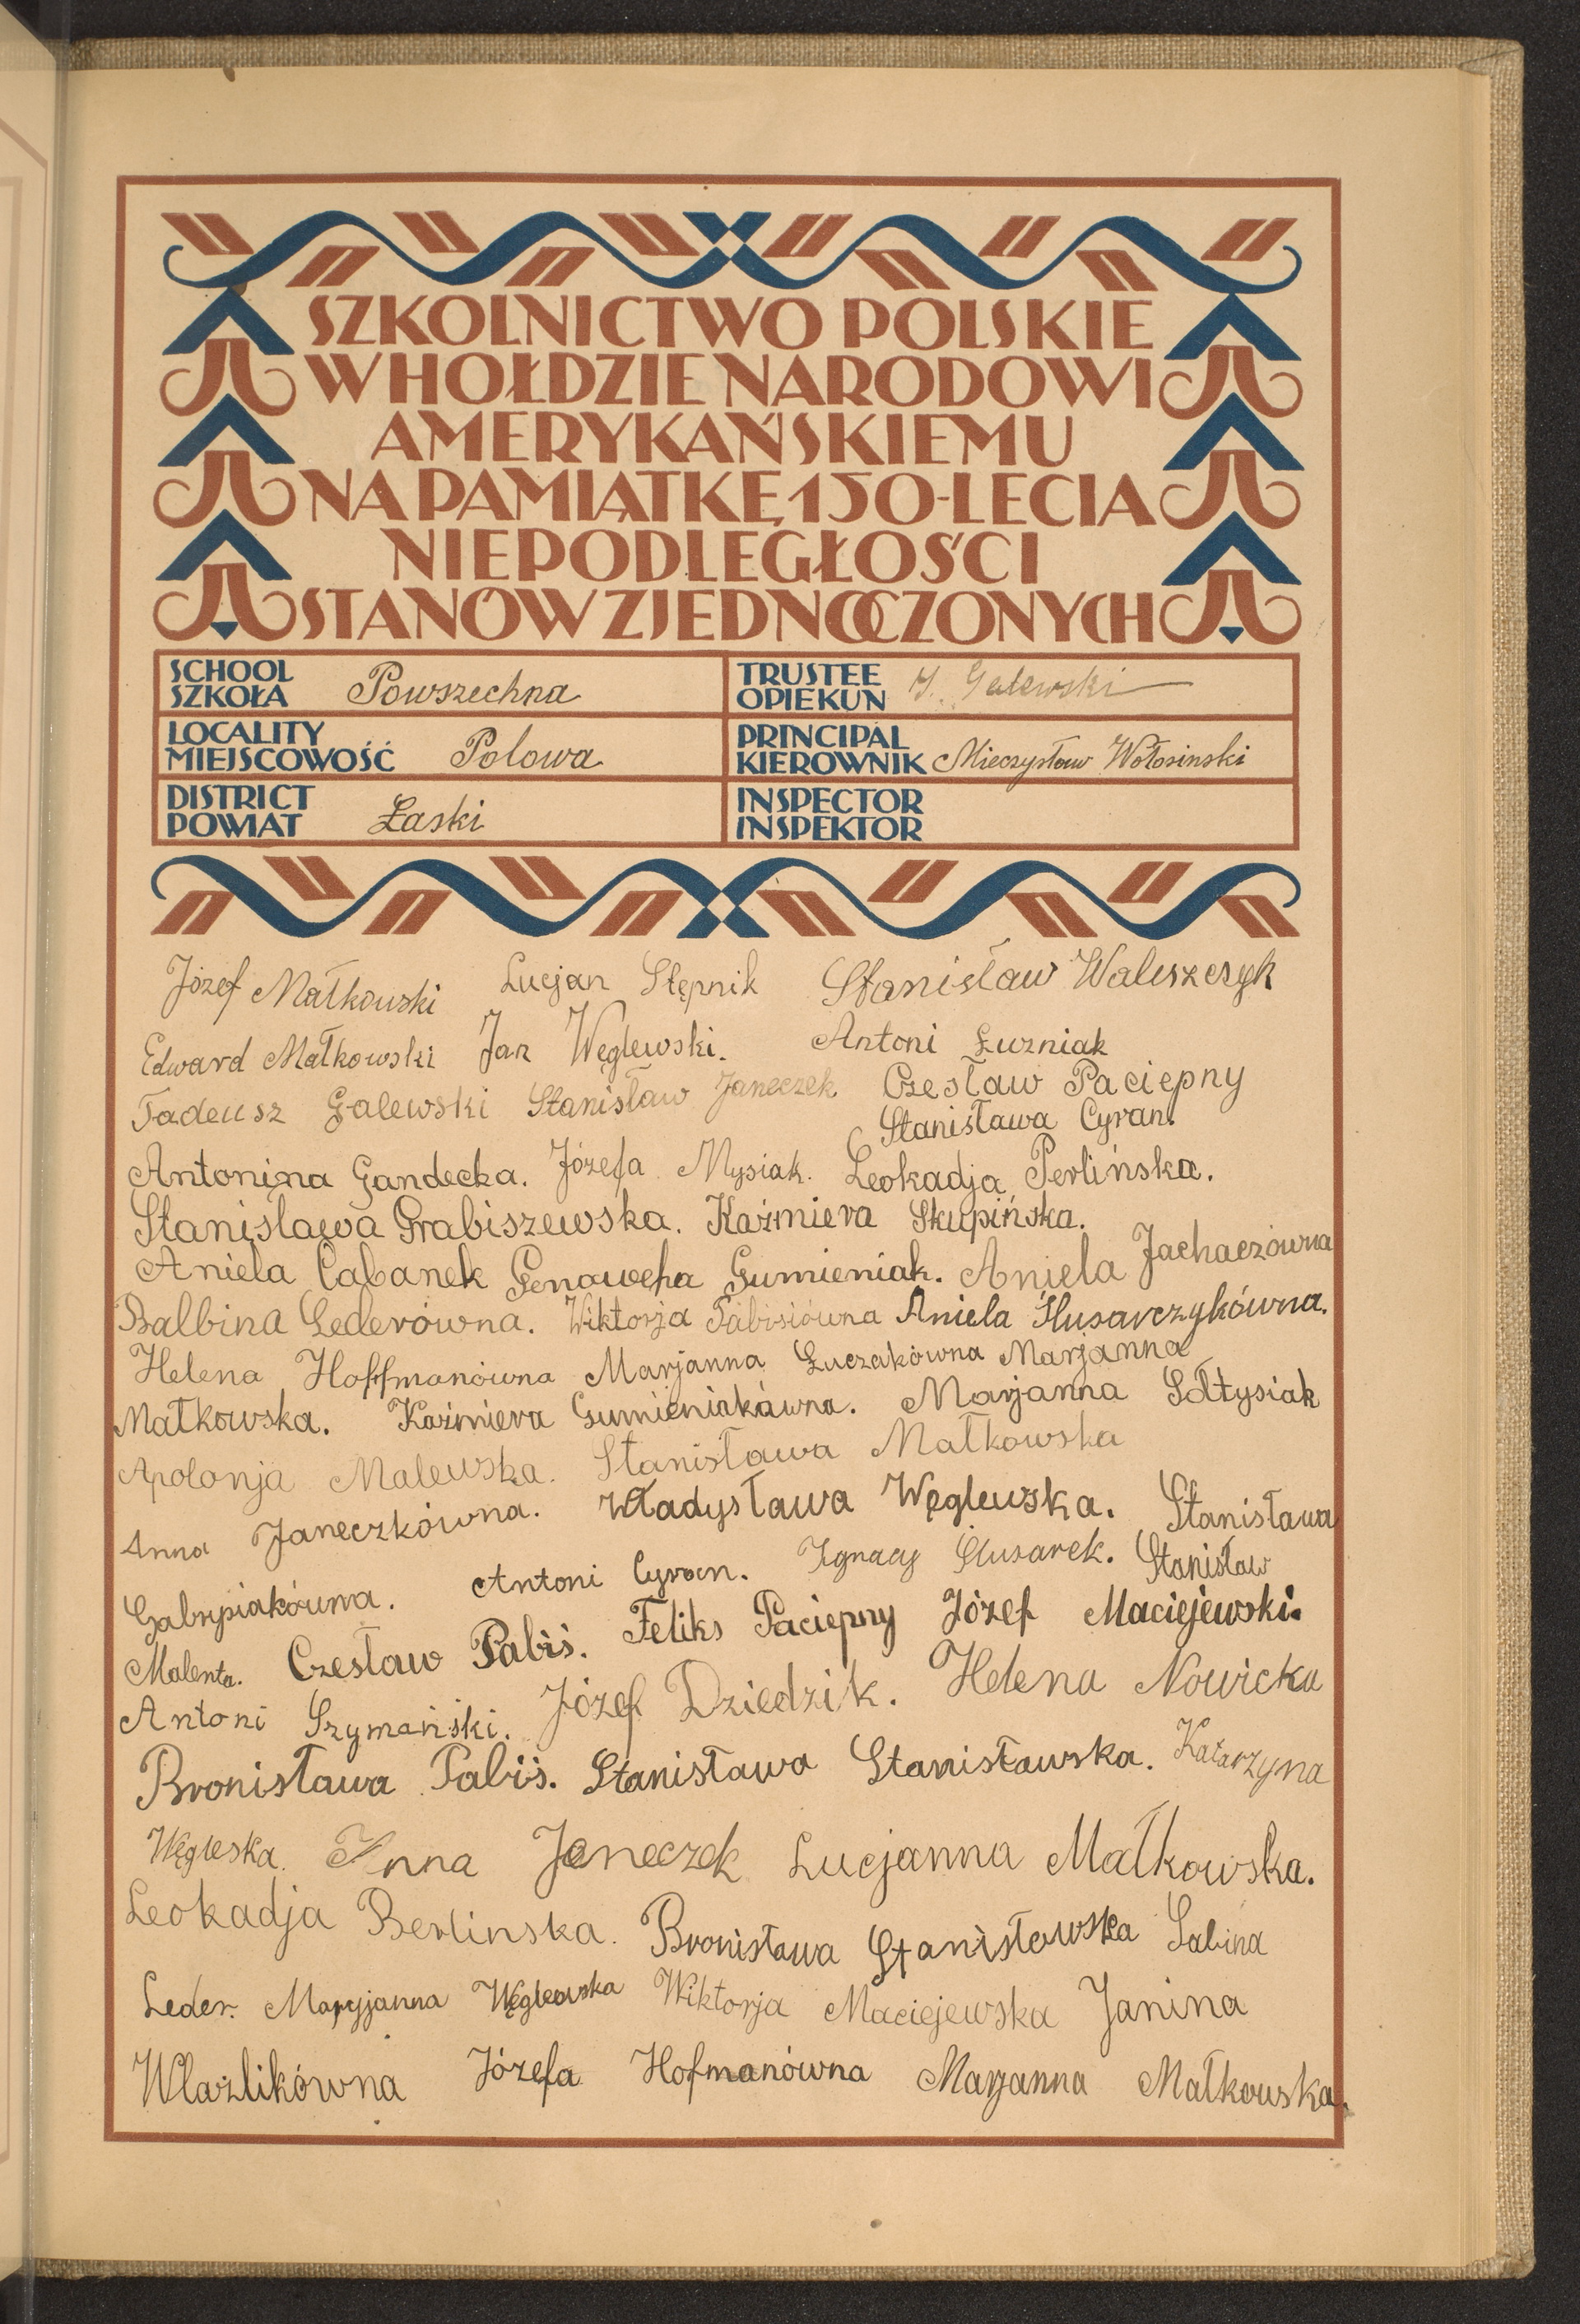 SZKOLNICTWO POLSKIE
W HOŁDZIE NARODOWI
AMERYKAŃSKIEMU
NA PAMIĄTKĘ 150-LECIA
NIEPODLEGŁOŚCI
STANÓW ZJEDNOCZONYCH
SCHOOL
SZKOŁA Powszechna
TRUSTEE
OPIEKUN J. Galewski
LOCALITY
MIEJSCOWOŚĆ Polowa
PRINCIPAL
KIEROWNIK Mieczysław Wołosinski
DISTRICT
POWIAT Łaski
INSPECTOR
INSPEKTOR
Józef Małkowski Lucjan Stępnik Stanisław Waluszczyk
Edward Małkowski Jan Węglewski. Antoni Łuzniak
Tadeusz Galewski Stanisław Janeczek Czesław Paciepny
Stanisława Cyran.
Antonina Gandecka. Józefa Mysiak. Leokadja Perlińska.
Stanisława Grabiszewska. Kaźmiera Skupińska.
Aniela Cabanek Genowefa Gumieniak. Aniela Jachaczówna
Balbina Lederówna. Wiktorja Pabisiówna Aniela Ślusarczykówna.
Helena Hoffmanówna Marjanna Łuczakówna Marjanna
Małkowska. Kaźmiera Gumieniakówna. Marjanna Sołtysiak
Apolonja Malewska. Stanisława Małkowska
Anna Janeczkówna. Władysława Węglewska. Stanisława
Gabrysiakówna. Antoni Cyran. Ignacy Ślusarek. Stanisław
Malenta. Czesław Pabiś. Feliks Paciepny Józef Maciejewski.
Antoni Szymański. Józef Dziedzik. Helena Nowicka
Bronisława Pabiś. Stanisława Stanisławska. Katarzyna
Węgleska. Anna Janeczek Lucjanna Małkowska.
Leokadja Berlinska. Bronisława Stanisłowska Sabina
Leder. Maryjanna Węgleowska Wiktorja Maciejewska Janina
Wlazlikówna Józefa Hofmanówna Marjanna Małkowska.